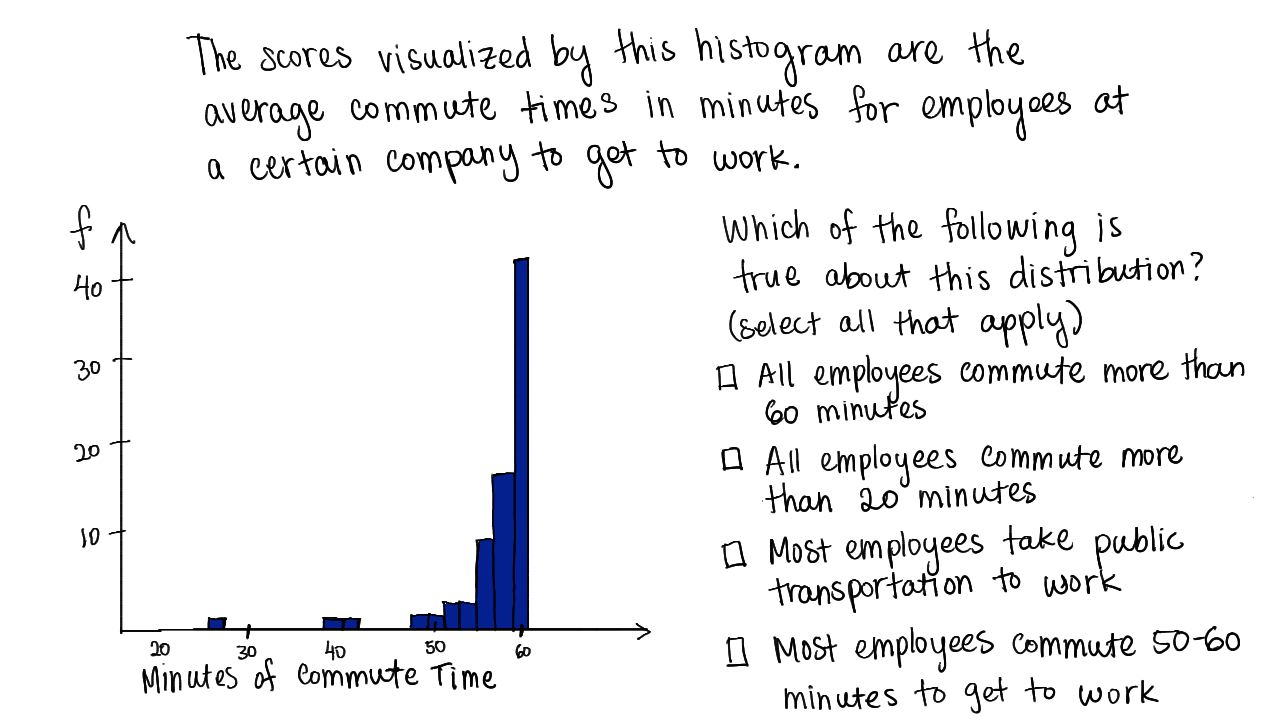 The scores visualized by this histogram are the
average commute times in minutes for employees at
a certain company to get to work.
f
40
30
20
10
20 30 40 50 60
Minutes of Commute Time
Which of the following is
true about this distribution?
(select all that apply)
All employees commute more than
60 minutes
All employees commute more
than 20 minutes
Most employees take public
transportation to work
Most employees commute 50-60
minutes to get to work